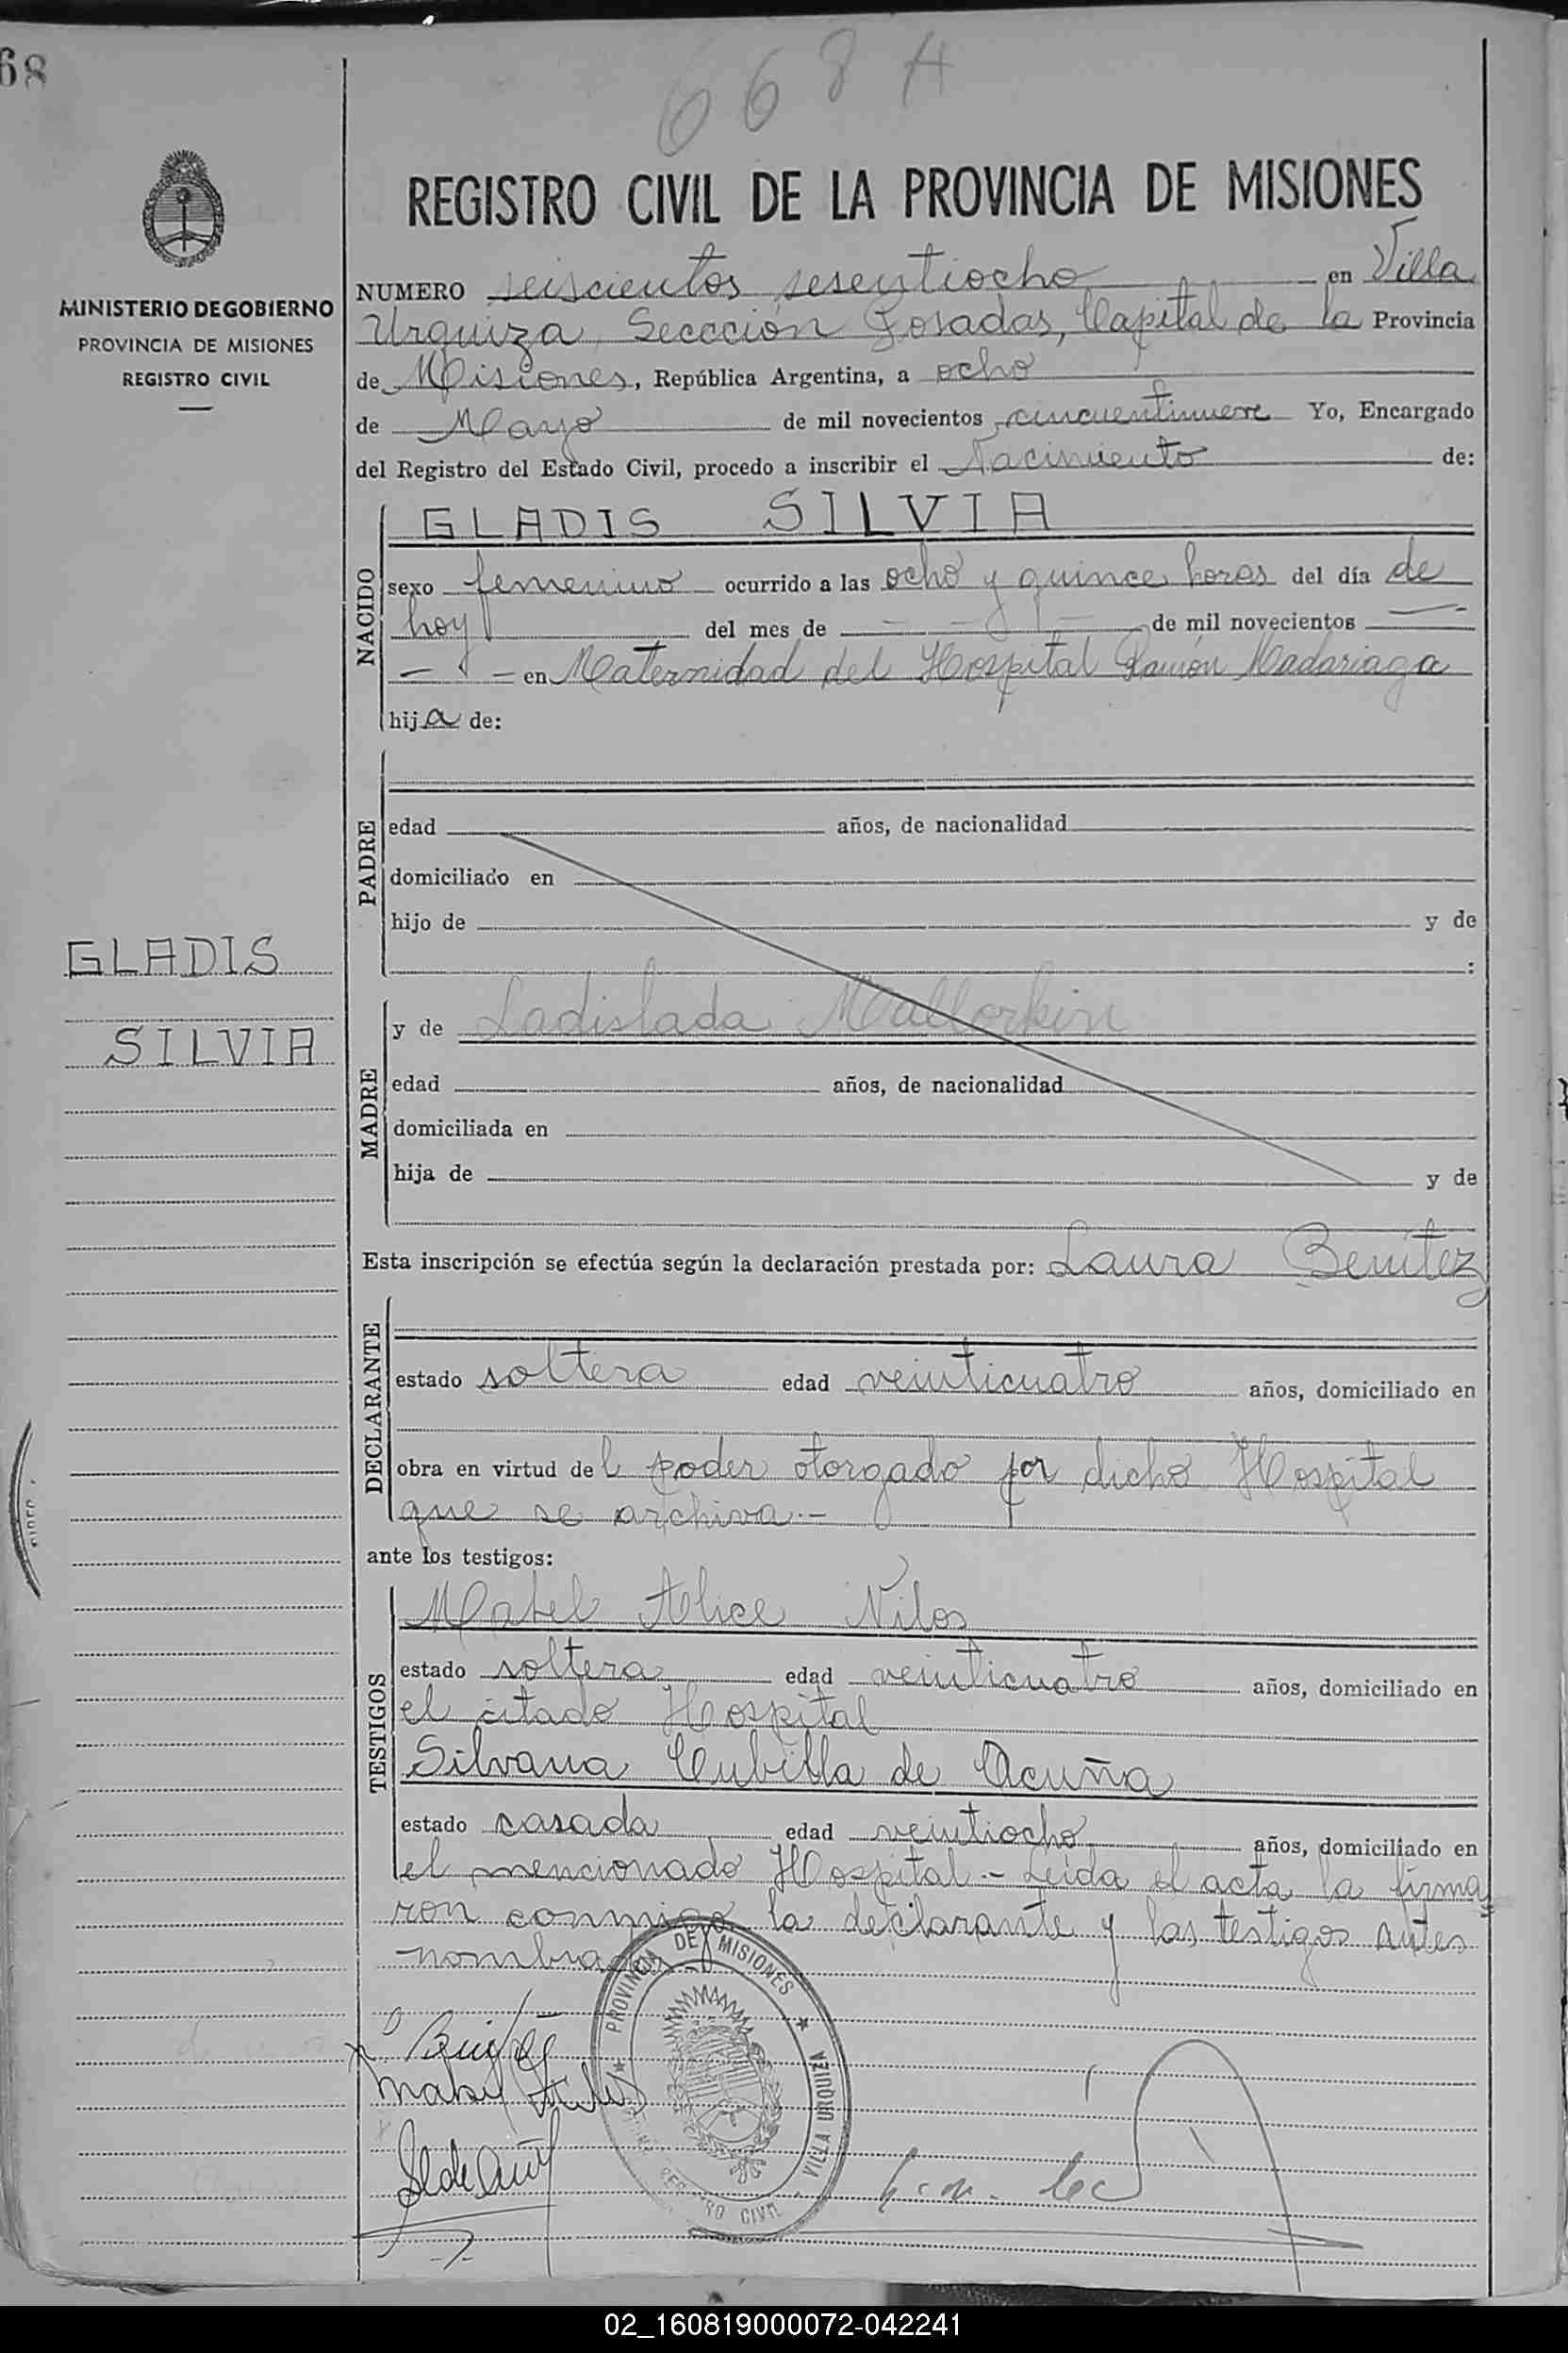 68
668 A
REGISTRO CIVIL DE LA PROVINCIA DE MISIONES
MINISTERIO DE GOBIERNO
PROVINCIA DE MISIONES
REGISTRO CIVIL
NUMERO seiscientos sesentiocho en Villa
Urquiza, Seccción Posadas, Capital de la Provincia
de Misiones, República Argentina, a ocho
de Mayo de mil novecientos cincuentinueve Yo, Encargado
del Registro del Estado Civil, procedo a inscribir el Nacimiento de:
GLADIS SILVIA
NACIDO
sexo femenino ocurrido a las ocho y quince horas del día de
hoy del mes de — — — de mil novecientos —
— — en Maternidad del Hospital Ramón Madariaga
hija de:
PADRE
edad años, de nacionalidad
domiciliado en
hijo de y de
:
GLADIS
SILVIA
MADRE
y de Ladislada Mallorkin
edad años, de nacionalidad
domiciliada en
hija de y de
Esta inscripción se efectúa según la declaración prestada por: Laura Benítez
DECLARANTE
estado soltera edad veinticuatro años, domiciliado en
obra en virtud del poder otorgado por dicho Hospital
que se archiva.-
ante los testigos:
TESTIGOS
Mabel Alice Nilos
estado soltera edad veinticuatro años, domiciliado en
el citado Hospital
Silvana Cubilla de Acuña
estado casada edad veintiocho años, domiciliado en
el mencionado Hospital.- Leída el acta la firma
ron conmigo la declarante y las testigos antes
nombradas.-
PROVINCIA DE MISIONES
VILLA URQUIZA
REGISTRO CIVIL
02_160819000072-042241